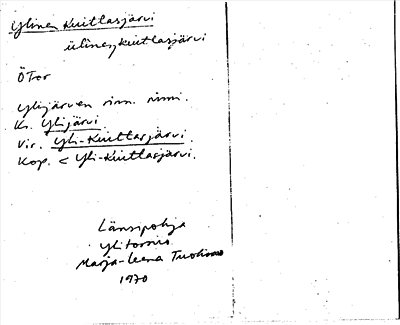 Ylinen Kuittasjärvi
ülinen̮kuittasjärvi
ÖTor
Ylijärven rinn. nimi.
Ks. Ylijärvi
Vir. Yli-Kuittasjärvi
Kop. < Yli-Kuittasjärvi.
Länsipohja
Ylitornio
Marja-Leena Tuohimaa
1970